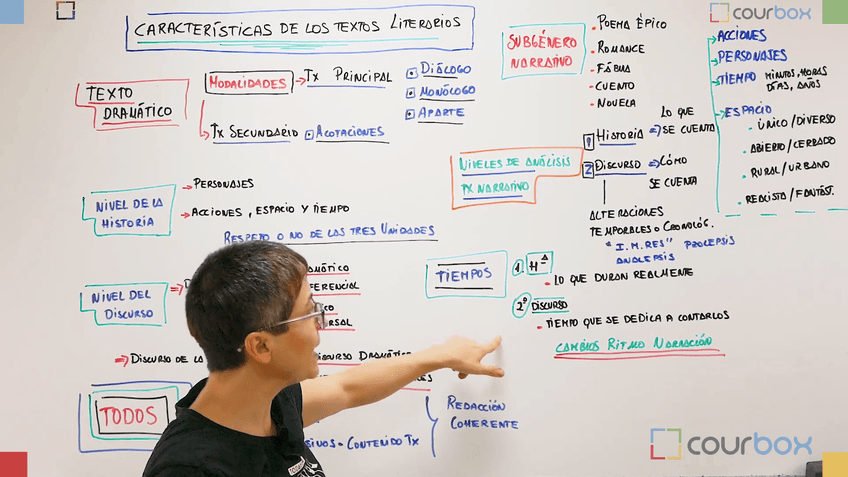 courbox
CARACTERÍSTICAS DE LOS TEXTOS LITERARIOS
TEXTO
DRAMÁTICO
MODALIDADES → TX PRINCIPAL
DIÁLOGO
MONÓLOGO
APARTE
TX SECUNDARIO → ACOTACIONES
NIVEL DE LA
HISTORIA
→ PERSONAJES
→ ACCIONES, ESPACIO Y TIEMPO
RESPETO O NO DE LAS TRES UNIDADES
NIVEL DEL
DISCURSO
→ DISCURSO DE LA
DISCURSO DRAMÁT
TODOS
CONTENIDO TX
REDACCIÓN
COHERENTE
SUBGÉNERO
NARRATIVO
• POEMA ÉPICO
• ROMANCE
• FÁBULA
• CUENTO
• NOVELA
NIVELES DE ANÁLISIS
TX NARRATIVO
1 HISTORIA ⇒ LO QUE
SE CUENTA
2 DISCURSO ⇒ CÓMO
SE CUENTA
ALTERACIONES
TEMPORALES O CRONOLÓG.
"I.M.RES" PROLEPSIS
ANALEPSIS
→ ACCIONES
→ PERSONAJES
→ TIEMPO MINUTOS, HORAS
DÍAS, AÑOS
→ ESPACIO
• ÚNICO/DIVERSO
• ABIERTO/CERRADO
• RURAL/URBANO
• REALISTA/FANTÁST.
TIEMPOS
1. Hª
• LO QUE DURAN REALMENTE
2º DISCURSO
• TIEMPO QUE SE DEDICA A CONTARLOS
CAMBIOS RITMO NARRACIÓN
courbox